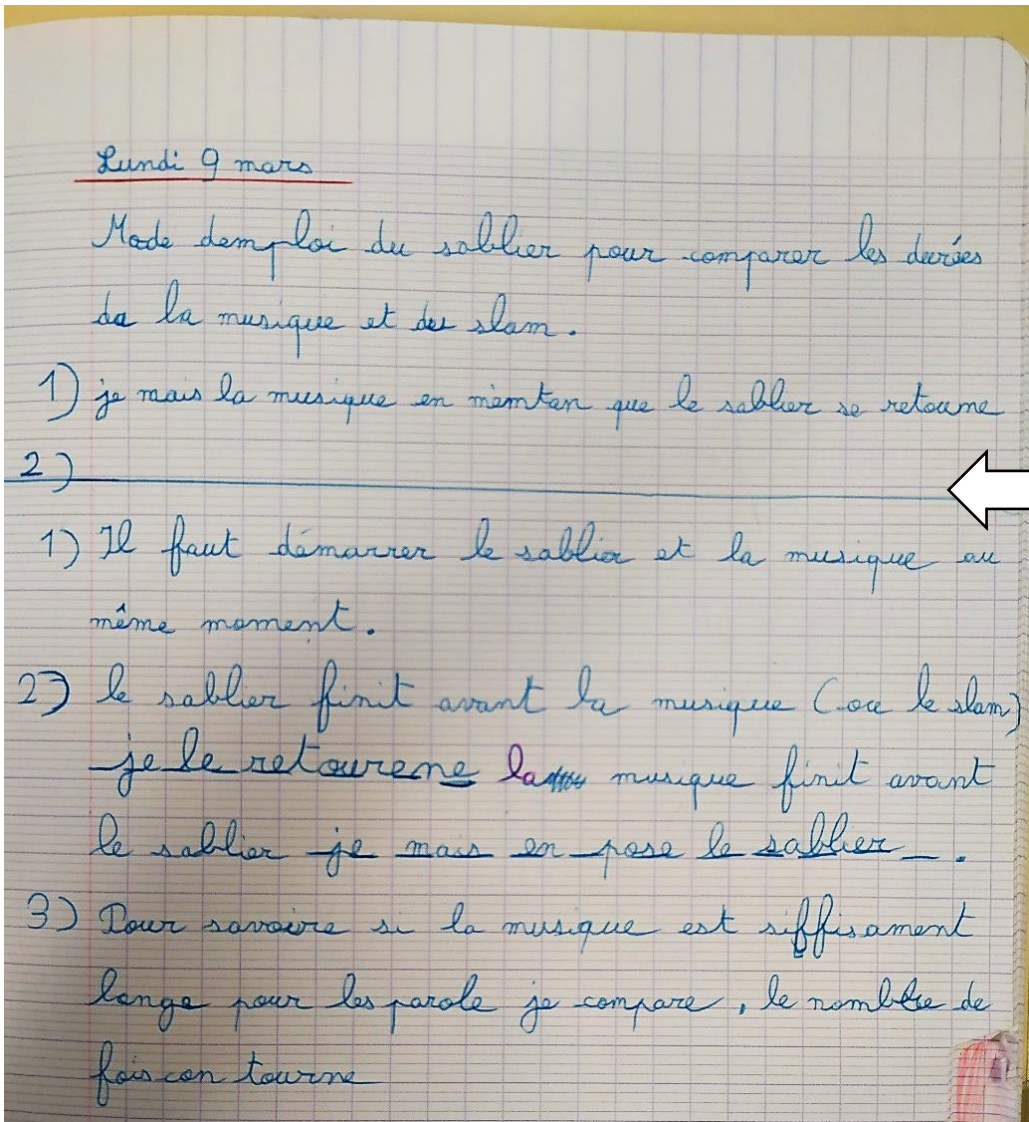 Lundi 9 mars
Mode demploi du sablier pour comparer les durées
de la musique et du slam.
1) je mais la musique en mêmtan que le sablier se retourne
2)
1) Il faut démarrer le sablier et la musique au
même moment.
2) le sablier finit avant la musique (ou le slam)
je le retourene la musique finit avant
le sablier je mais en pose le sablier .
3) Pour savoire si la musique est siffisament
longe pour les parole je compare, le nombre de
fois con tourne